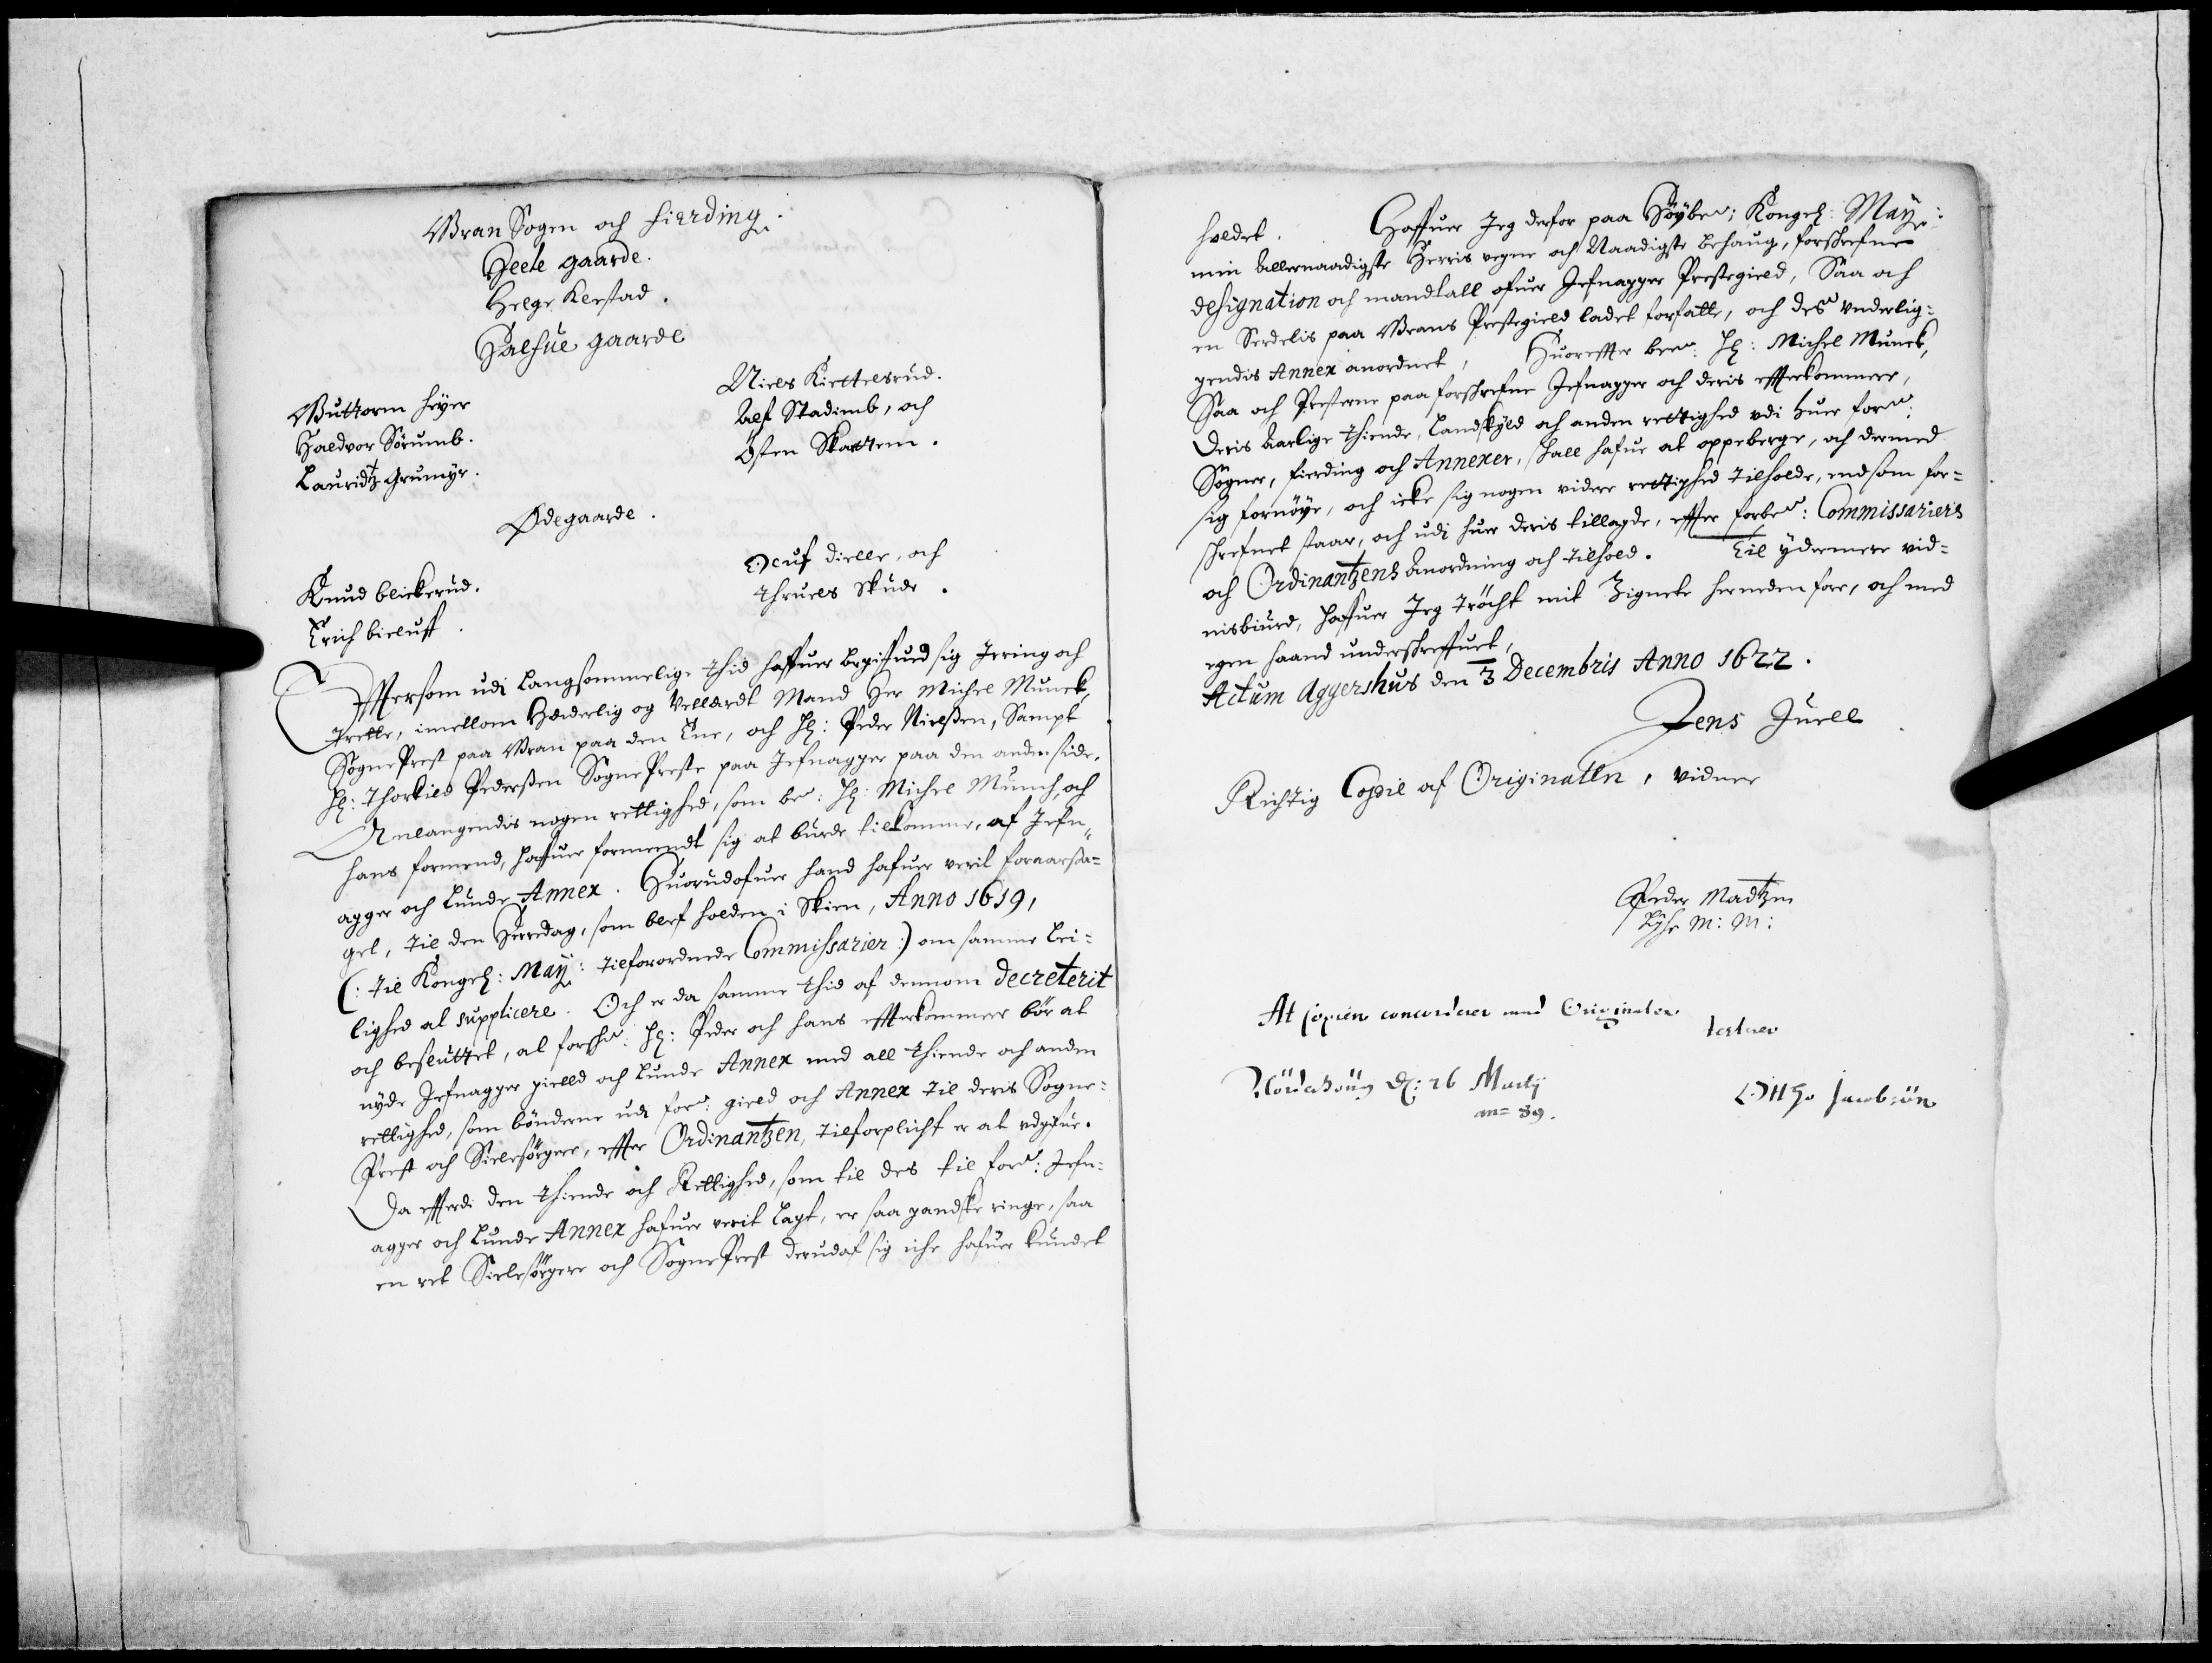 Gran Sogen och fierding.
Heele gaarde.
Helge Klestad.
Halfue gaarde
Guttorm heyer
Haldvor Sörumb.
Lauridtz Grumyr.
Niels Kiettelsrud.
Alf Stadimb, och
Østen Skattem.
Ødegaarde.
Knud blickerud.
Erich bieluff.
Oluf dielle, och
Thruels Skude.
Effersom udi Langsommelige thid haffuer begifvud sig Irring och
trette, imellom Hæderlig og Vellærdt Mand Her Michel Munck,
Sogne Prest paa Gran paa den Ene, och Hl: Peder Nielßen, Sampt
Hl: Thorkild Pederßen Sogne Preste paa Jefnagger paa den anden side,
Anlangendis nogen rettighed, som bed: Hl: Michel Munch, och
hans formend, haffuer formeendt sig at burde tilkomme, af Jefn-
agger och Lunde Annex. Huorudofuer hand hafuer verit foraarsa-
get, til den Herredag, som blef holden i Skien, Anno 1619,
(: til Kongel: May: tilforordnede Commissarier:) om samme lei-
lighed at supplicere. Och er da samme thid af dennom decreterit
och besluttet, at forschr: Hl: Peder och hans effterkommere bör at
nyde Jefnagger gielld och Lunde Annex med all thiende och anden
rettighed, som bönderne udi ford: gield och Annex til deris Sogne-
Prest och Sielesörgere, effter Ordinantzen, tilforplicht er at udgifue.
Da efferdi den thiende och Rettighed, som til des til ford: Jefn-
agger och Lunde Annex hafuer verit lagt, er saa gandske ringe, saa
en ret Sielesörgere och Sogne Prest derudaf sig iche hafuer kundet
holdet. Haffuer Jeg derfor paa Höybed: Kongel: May:
min Allernaadigste Herris vegne och Naadigste behaug, forschrefne
designation och mandtall ofuer Jefnagger Prestegield, Saa och
en Serdelis paa Grans Prestegield ladet forfatte, och des underlig-
gendis Annex anordnet, Huoreffter bed: Hl: Michel Munck,
Saa och Presterne paa forschrefne Jefnagger och deris effterkommere,
deris Aarlige thiende, Landskyld och anden rettighed udi huer ford:
Sogner, fierding och Annexer, skall hafue at oppeberge, och dermed
sig fornöye, och icke sig nogen videre rettighed tilholde, end som for-
schrefnet staar, och udi huer deris tillagde, effter forbed: Commissariers
och Ordinantzens Anordning och tilhold. Til ydermere vid-
nisbiurd, haffuer Jeg tröcht mit Zignete herneden fore, och med
egen haand underschreffuet,
Actum Aggershus den 3 Decembris Anno 1622.
Jens Juell
Richtig Copie af Originalen, vidner
Peder Madtzen
M: M:
At copien concorderer med Originalen
testerer
Nörderhoug d: 26 Martij
an= 89.
Otthe Jacobsön